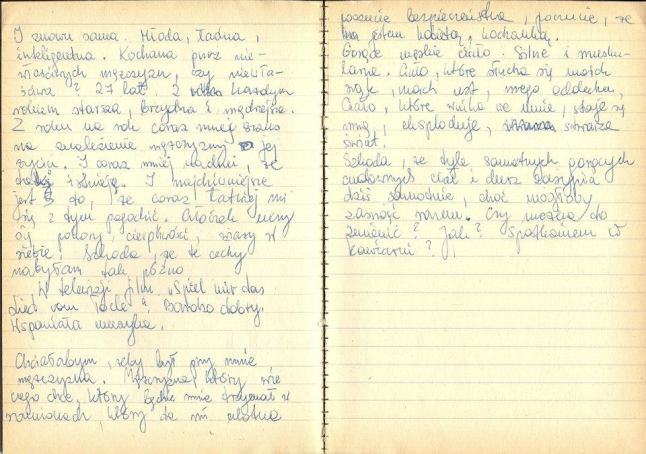 I znowu sama. Młoda, ładna,
inteligentna. Kochana przez nie-
właściwych mężczyzn, czy niewła-
ściwa? 27 lat. Z każdym
rokiem starsza, brzydsza i mądrzejsza.
Z roku na rok coraz mniej szans
na znalezienie mężczyzny jej
życia. I coraz mniej nadziei, że
istnieje. I najdziwniejsze
jest to, że coraz łatwiej mi
się z tym pogodzić. Człowiek uczy
się pokory, cierpliwości, wiary w
siebie. Szkoda, że te cechy
nabyłam tak późno
W telewizji film "Spiel mir das
Lied vom Tode". Bardzo dobry.
Wspaniała muzyka.
Chciałabym, żeby był przy mnie
mężczyzna. Mężczyzna, który wie
czego chce, który będzie mnie trzymał w
ramionach, który da mi
poczucie bezpieczeństwa, poczucie, że
jestem kobietą, kochanką.
Gorące męskie ciało. Silne i musku-
larne. Ciało, które słucha się moich
rąk, moich ust, mego oddechu,
Ciało, które wnika we mnie, staje się
mną, eksploduje, stwarza
świat.
Szkoda, że tyle samotnych gorących
cudownych ciał i dusz zasypia
dziś samotnie, choć mogłoby
zasnąć razem. Czy można to
zmienić? Jak? Spotkaniem w
kawiarni?